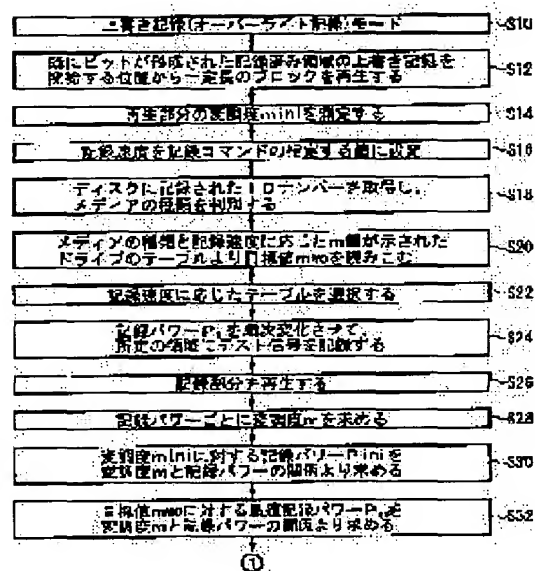 上書き記録(オーバーライト記録)モード ~S10
既にピットが形成された記録済み領域の上書き記録を
開始する位置から一定長のブロックを再生する ~S12
再生部分の変調度miniを測定する ~S14
記録速度を記録コマンドの指定する値に設定 ~S16
ディスクに記録されたIDナンバーを取得し、
メディアの種類を判別する ~S18
メディアの種類と記録速度に応じたm値が示された
ドライブのテーブルより目標値mwoを読みこむ ~S20
記録速度に応じたテーブルを選択する ~S22
記録パワーPを順次変化させて、
所定の領域にテスト信号を記録する ~S24
記録部分を再生する ~S26
記録パワーごとに変調度mを求める ~S28
変調度miniに対する記録パワーPiniを
変調度mと記録パワーの関係より求める ~S30
目標値mwoに対する最適記録パワーPを
変調度mと記録パワーの関係より求める ~S32
①